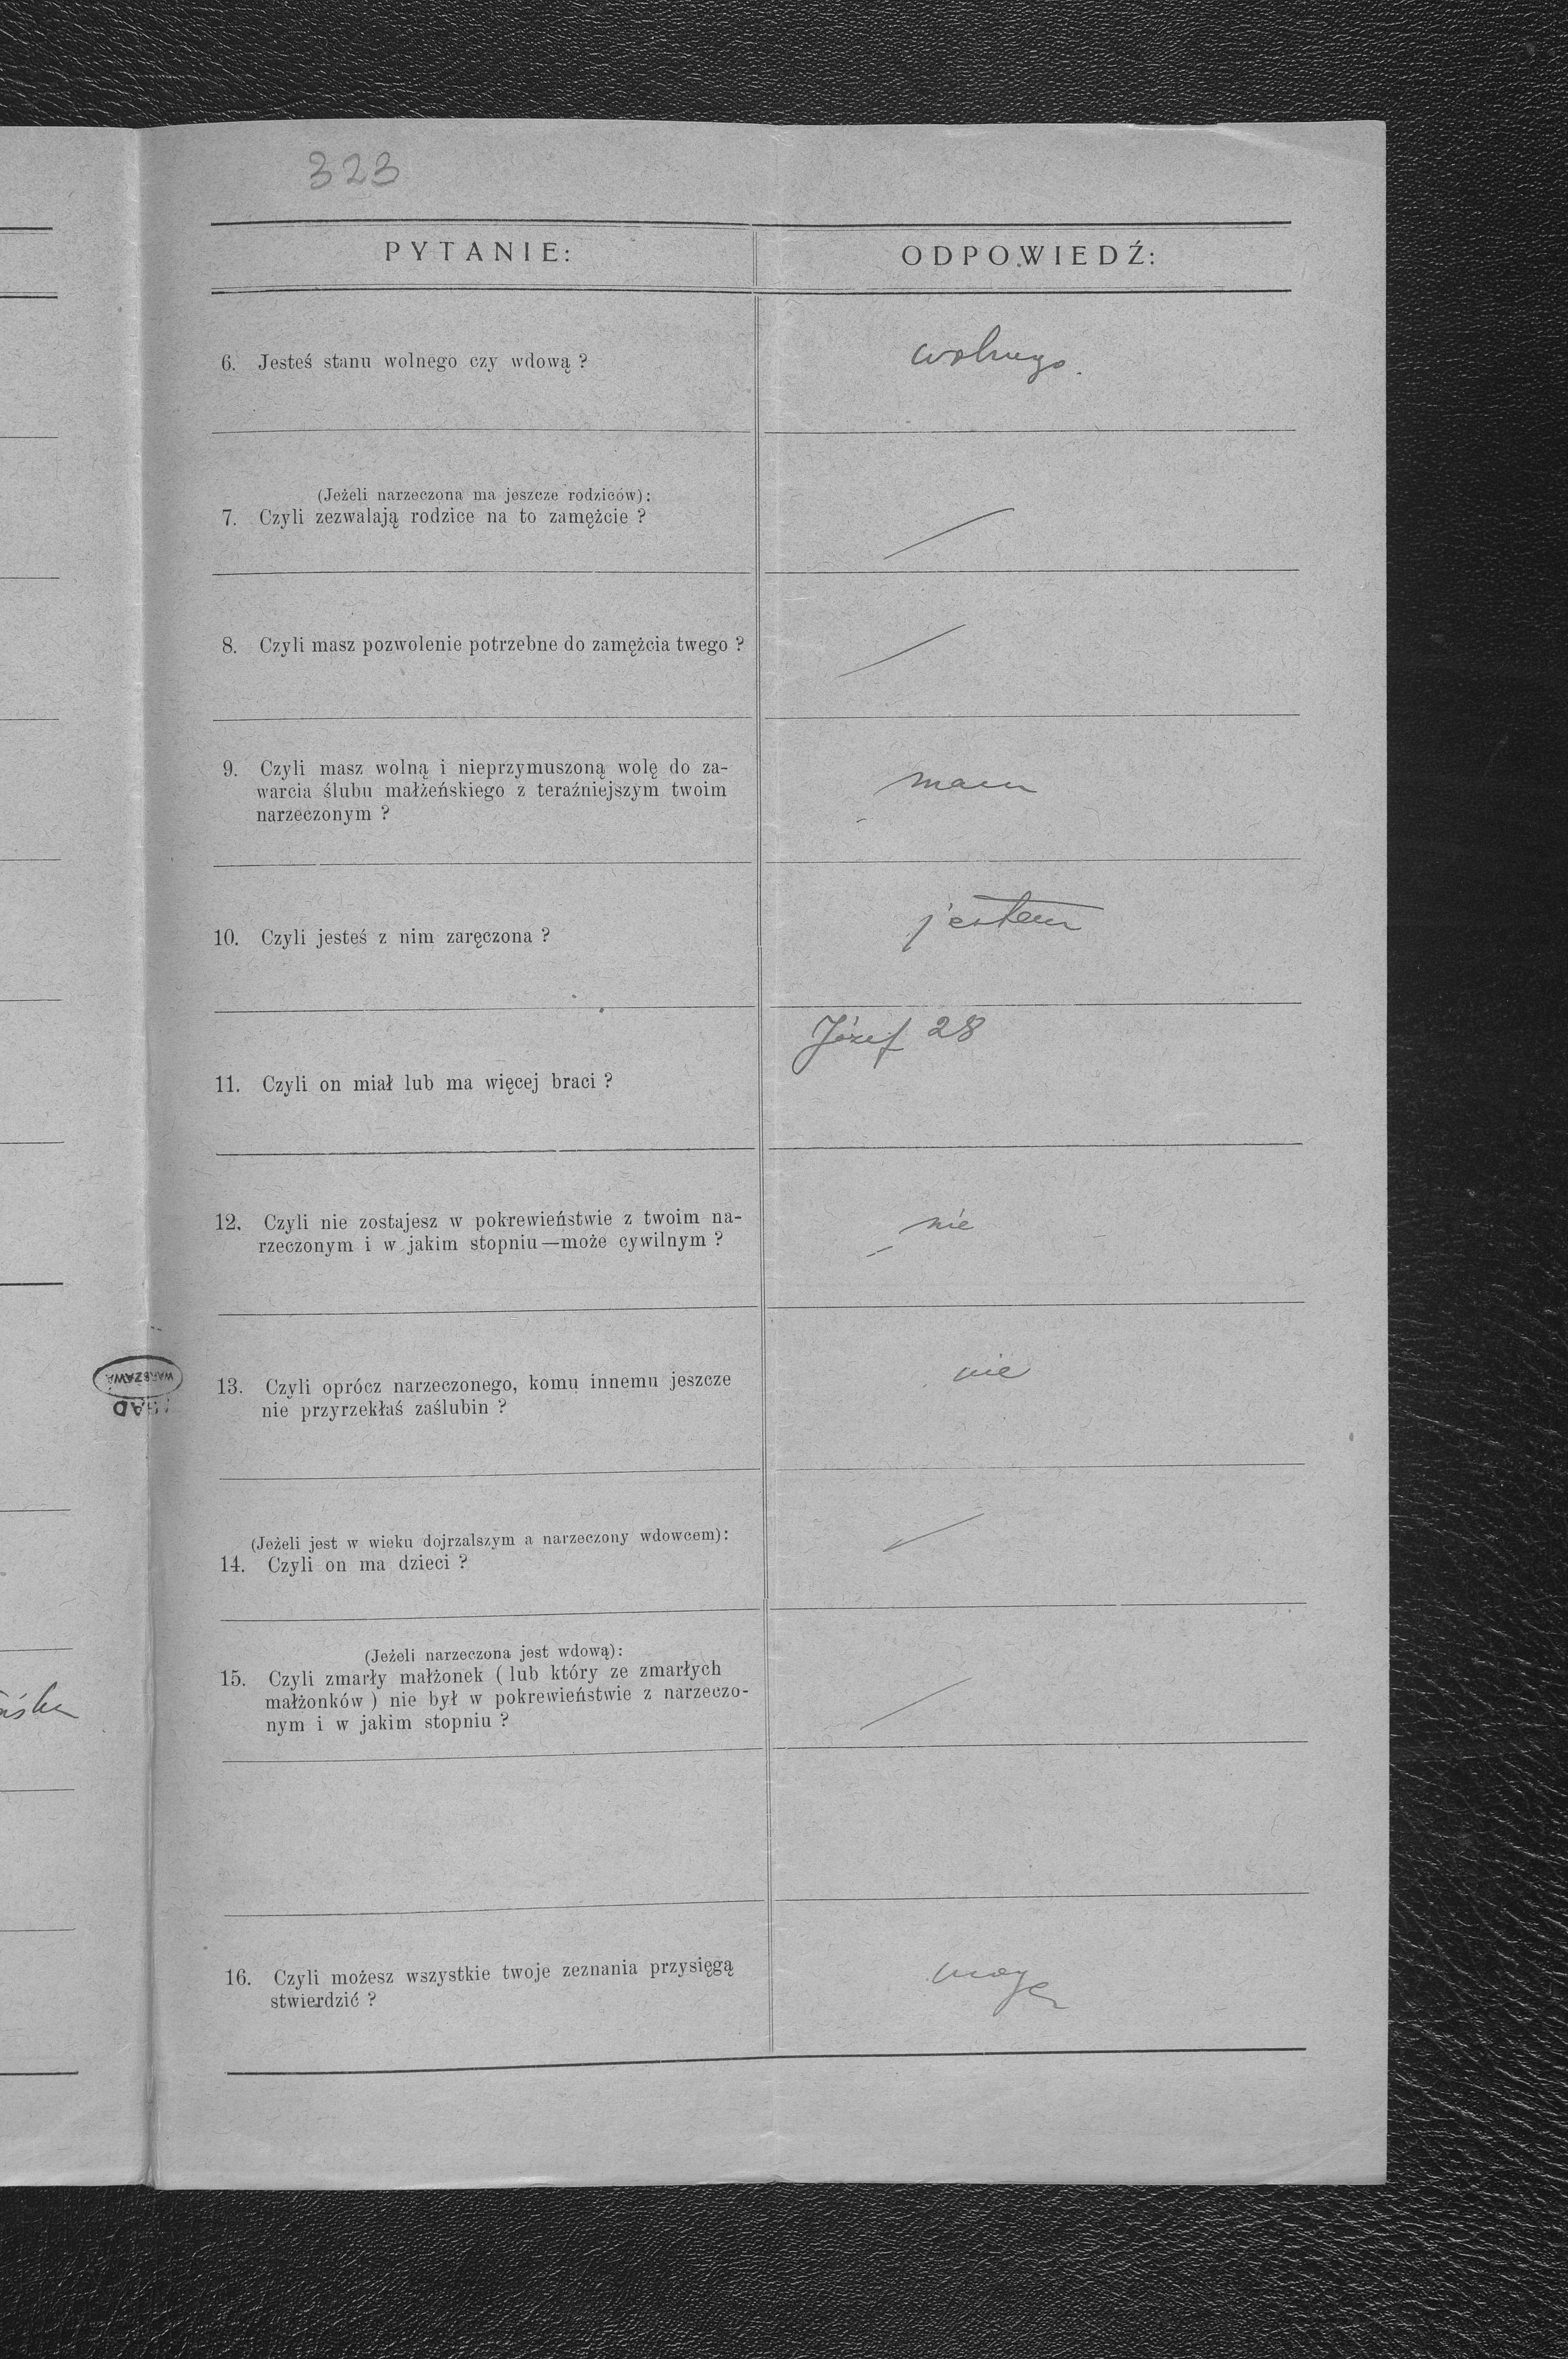 323
PYTANIE:
ODPOWIEDŹ:
6. Jesteś stanu wolnego czy wdową ?
wolnego.
(Jeżeli narzeczona ma jeszcze rodziców):
7. Czyli zezwalają rodzice na to zamężcie ?
8. Czyli masz pozwolenie potrzebne do zamężcia twego ?
9. Czyli masz wolną i nieprzymuszoną wolę do za-
warcia ślubu małżeńskiego z teraźniejszym twoim
narzeczonym ?
mam
10. Czyli jesteś z nim zaręczona ?
jestem
11. Czyli on miał lub ma więcej braci ?
Józef 28
12. Czyli nie zostajesz w pokrewieństwie z twoim na-
rzeczonym i w jakim stopniu—może cywilnym ?
nie
13. Czyli oprócz narzeczonego, komu innemu jeszcze
nie przyrzekłaś zaślubin ?
nie
(Jeżeli jest w wieku dojrzalszym a narzeczony wdowcem):
14. Czyli on ma dzieci ?
(Jeżeli narzeczona jest wdową):
15. Czyli zmarły małżonek ( lub który ze zmarłych
małżonków ) nie był w pokrewieństwie z narzeczo-
nym i w jakim stopniu ?
16. Czyli możesz wszystkie twoje zeznania przysięgą
stwierdzić ?
mogę
WARSZAWA